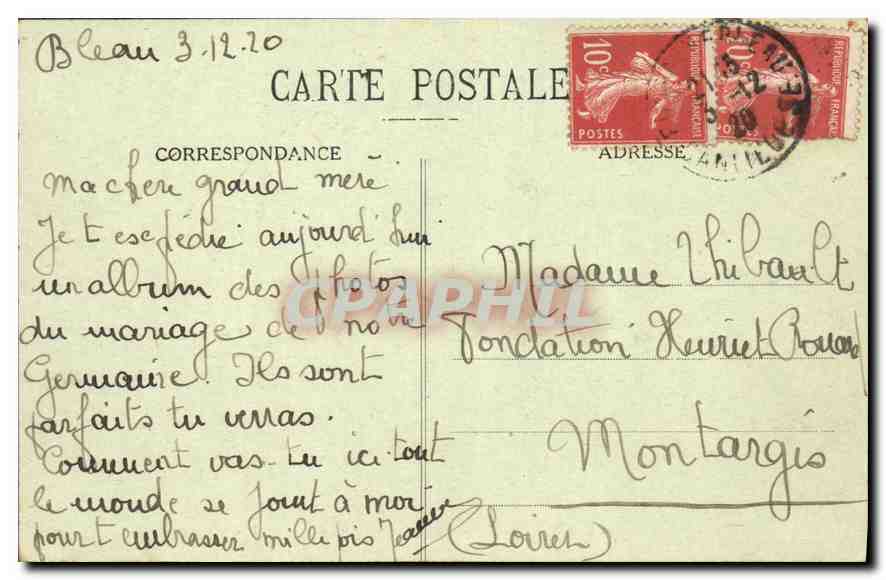 Bleau 3.12.20
CARTE POSTALE
CORRESPONDANCE
ADRESSE
10c
REPUBLIQUE FRANÇAISE
POSTES
10c
REPUBLIQUE FRANÇAISE
POSTES
3-12
20
Ma chere grand mere
Je t'expédie aujourd'hui
un album des photos
du mariage de notre
Germaine. Ils sont
parfaits tu verras.
Comment vas-tu ici tout
le monde se joint à moi
pour t embrasser mille fois Jeanne
Madame Thibault
Fondation Henriet Rouard
Montargis
(Loiret)
CPAPHIL